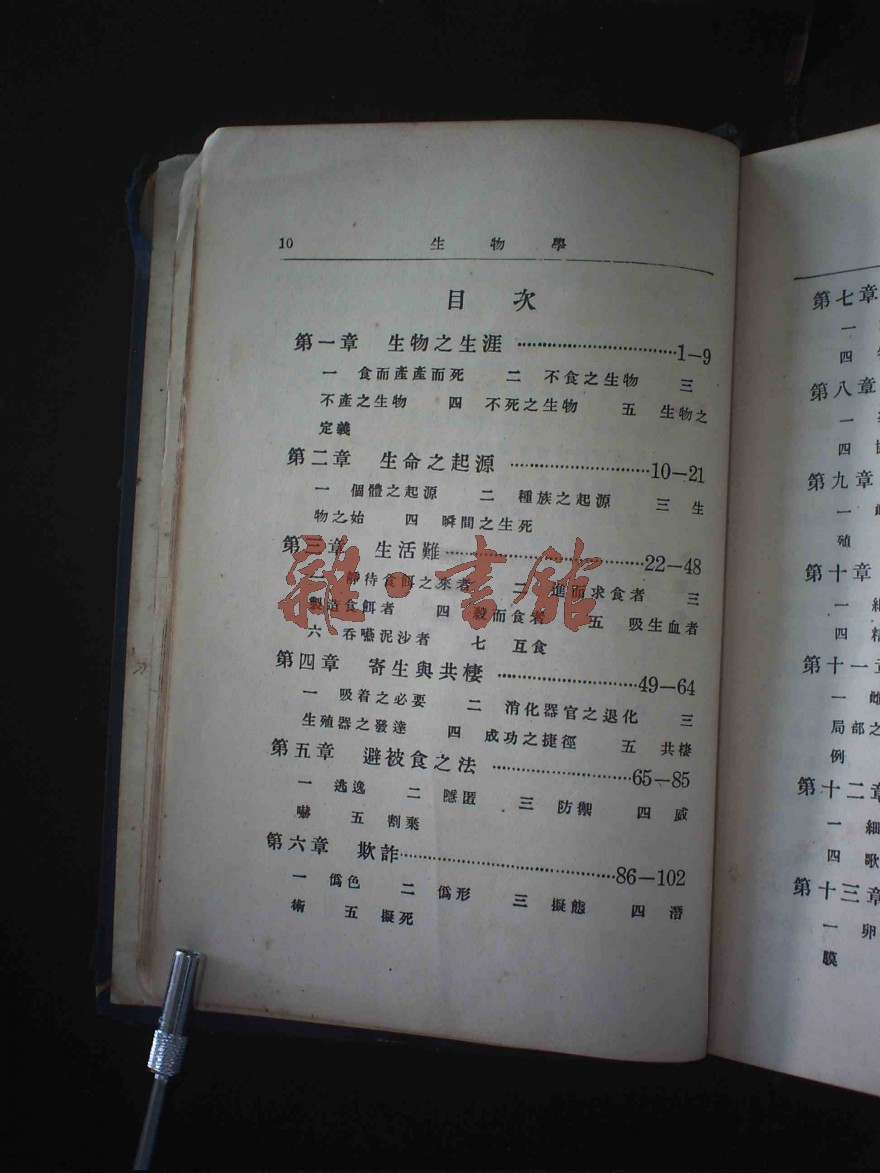 10 生物學
目次
第一章 生物之生涯 ……………………………1—9
一 食而產產而死 二 不食之生物 三
不產之生物 四 不死之生物 五 生物之
定義
第二章 生命之起源 ………………………10—21
一 個體之起源 二 種族之起源 三 生
物之始 四 瞬間之生死
第三章 生活難 …………………………………22—48
一 靜待食餌之來者 二 進而求食者 三
製造食餌者 四 殺而食者 五 吸生血者
六 吞嚥泥沙者 七 互食
第四章 寄生與共棲 ………………………49—64
一 吸着之必要 二 消化器官之退化 三
生殖器之發達 四 成功之捷徑 五 共棲
第五章 避被食之法 ………………………65—85
一 逃逸 二 隱匿 三 防禦 四 威
嚇 五 割棄
第六章 欺詐 ……………………………………86—102
一 僞色 二 僞形 三 擬態 四 潛
術 五 擬死
雜·書館
第七章
一
四
第八章
一
四
第九章
一
殖
第十章
一
四 精
第十一章
一 雌
局部之
例
第十二章
一 細
四 歌
第十三章
一 卵
膜